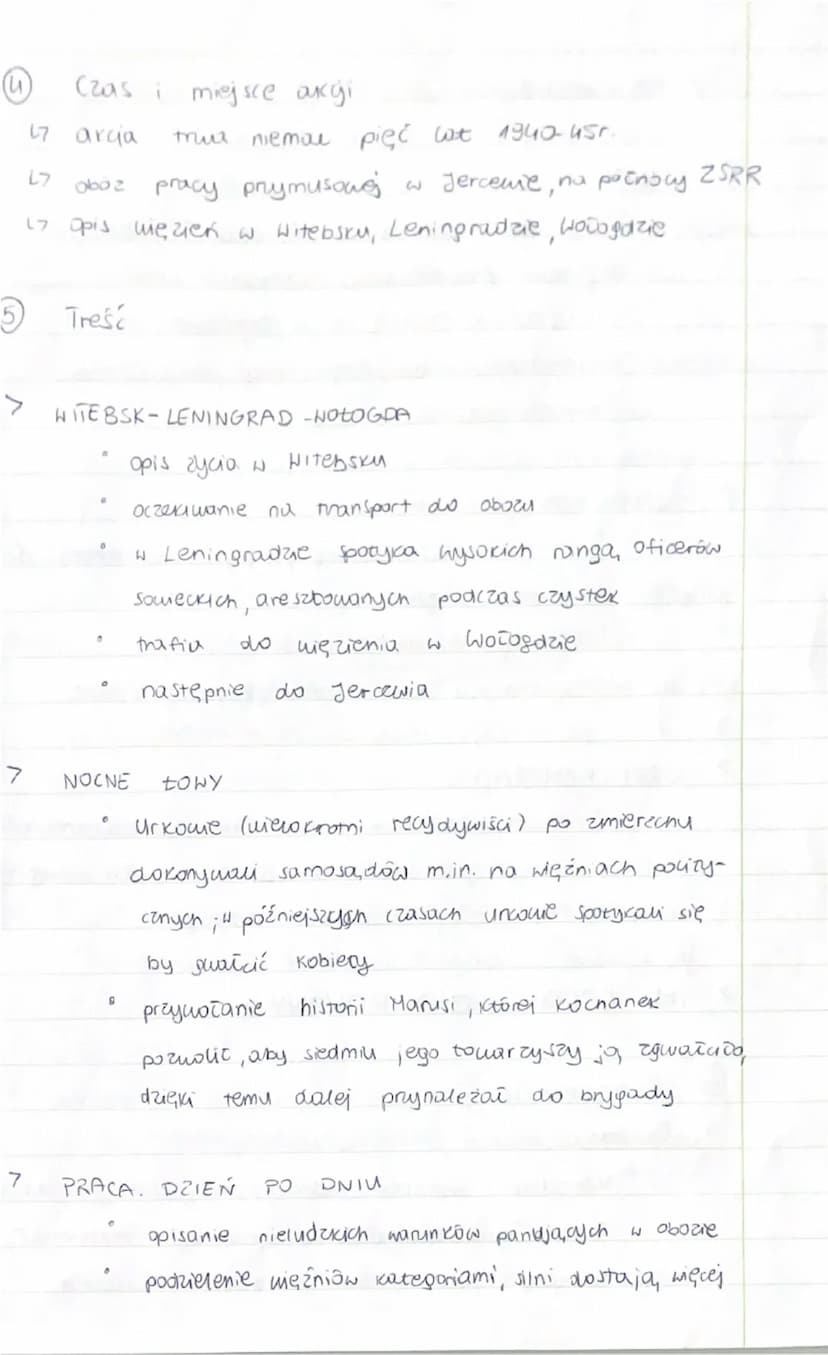 ④ Czas i miejsce akcji
↳ akcja trwa niemal pięć lat 1940-45r.
↳ obóz pracy przymusowej w Jercewie, na północy ZSRR
↳ opis więzień w Witebsku, Leningradzie, Wołogdzie
⑤ Treść
> WITEBSK - LENINGRAD - WOŁOGDA
• opis życia w Witebsku
• oczekiwanie na transport do obozu
• w Leningradzie spotyka wysokich rangą oficerów
sowieckich, aresztowanych podczas czystek
• trafia do więzienia w Wołogdzie
• następnie do Jercewia
> NOCNE ŁOWY
• Urkowie (wielokrotni recydywiści) po zmierzchu
dokonywali samosądów m.in. na więźniach polity-
cznych; w późniejszych czasach urkowie spotykali się
by gwałcić kobiety
• przywołanie historii Marusi, której kochanek
pozwolił, aby siedmiu jego towarzyszy ją zgwałciło,
dzięki temu dalej przynależał do brygady
> PRACA. DZIEŃ PO DNIU
• opisanie nieludzkich warunków panujących w obozie
• podzielenie więźniów kategoriami, silni dostają więcej